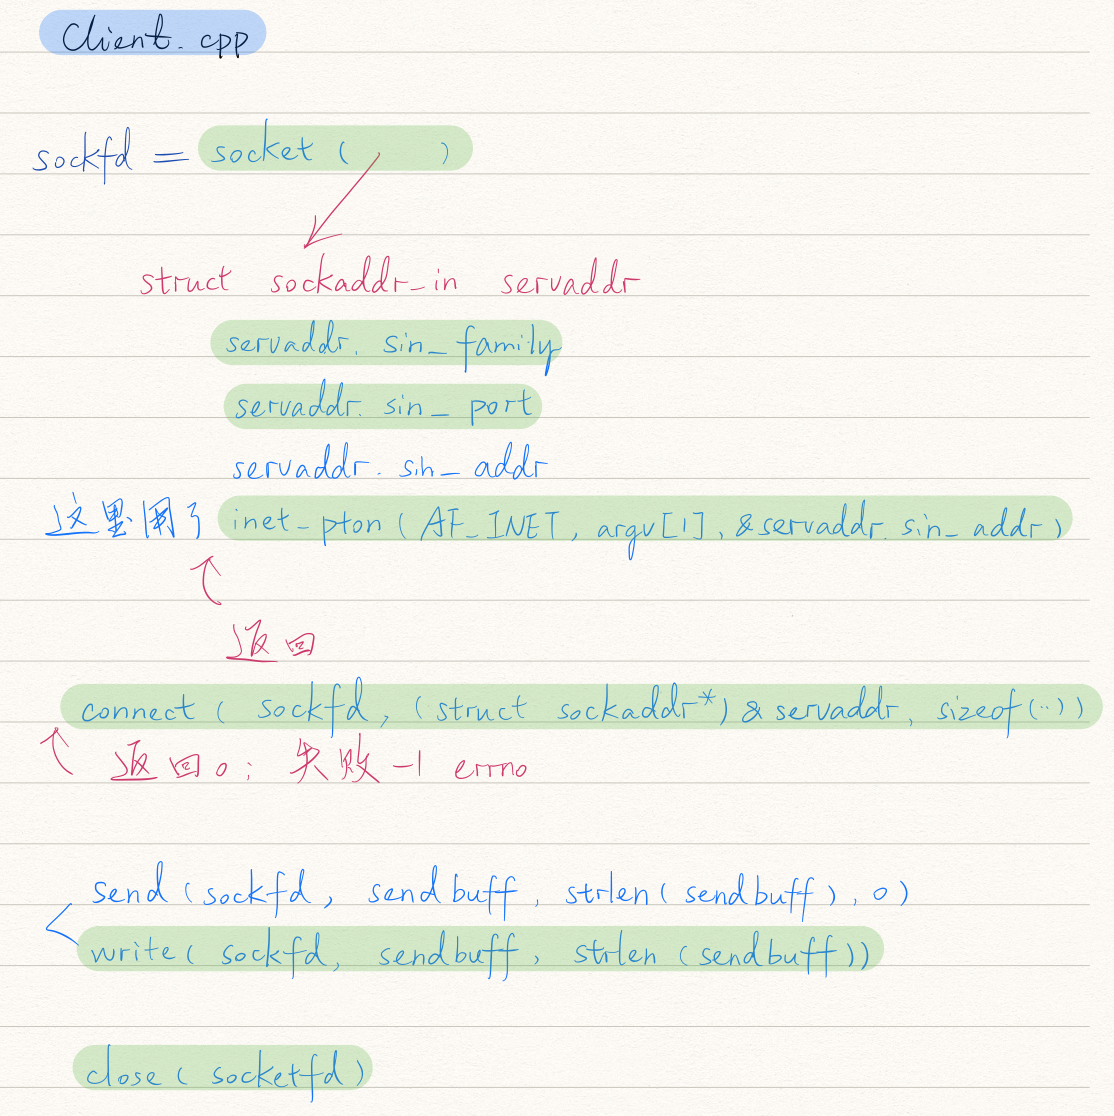 Client.cpp
sockfd = socket ( , )
struct sockaddr_in servaddr
servaddr. sin_family
servaddr. sin_port
servaddr. sin_addr
这里用了 inet_pton ( AF_INET, argv[1], &servaddr.sin_addr)
返回
connect ( sockfd, (struct sockaddr*) & servaddr, sizeof(..))
返回0; 失败-1 errno
send (sockfd, sendbuff, strlen(sendbuff), 0)
write( sockfd, sendbuff, strlen (sendbuff))
close ( socketfd)